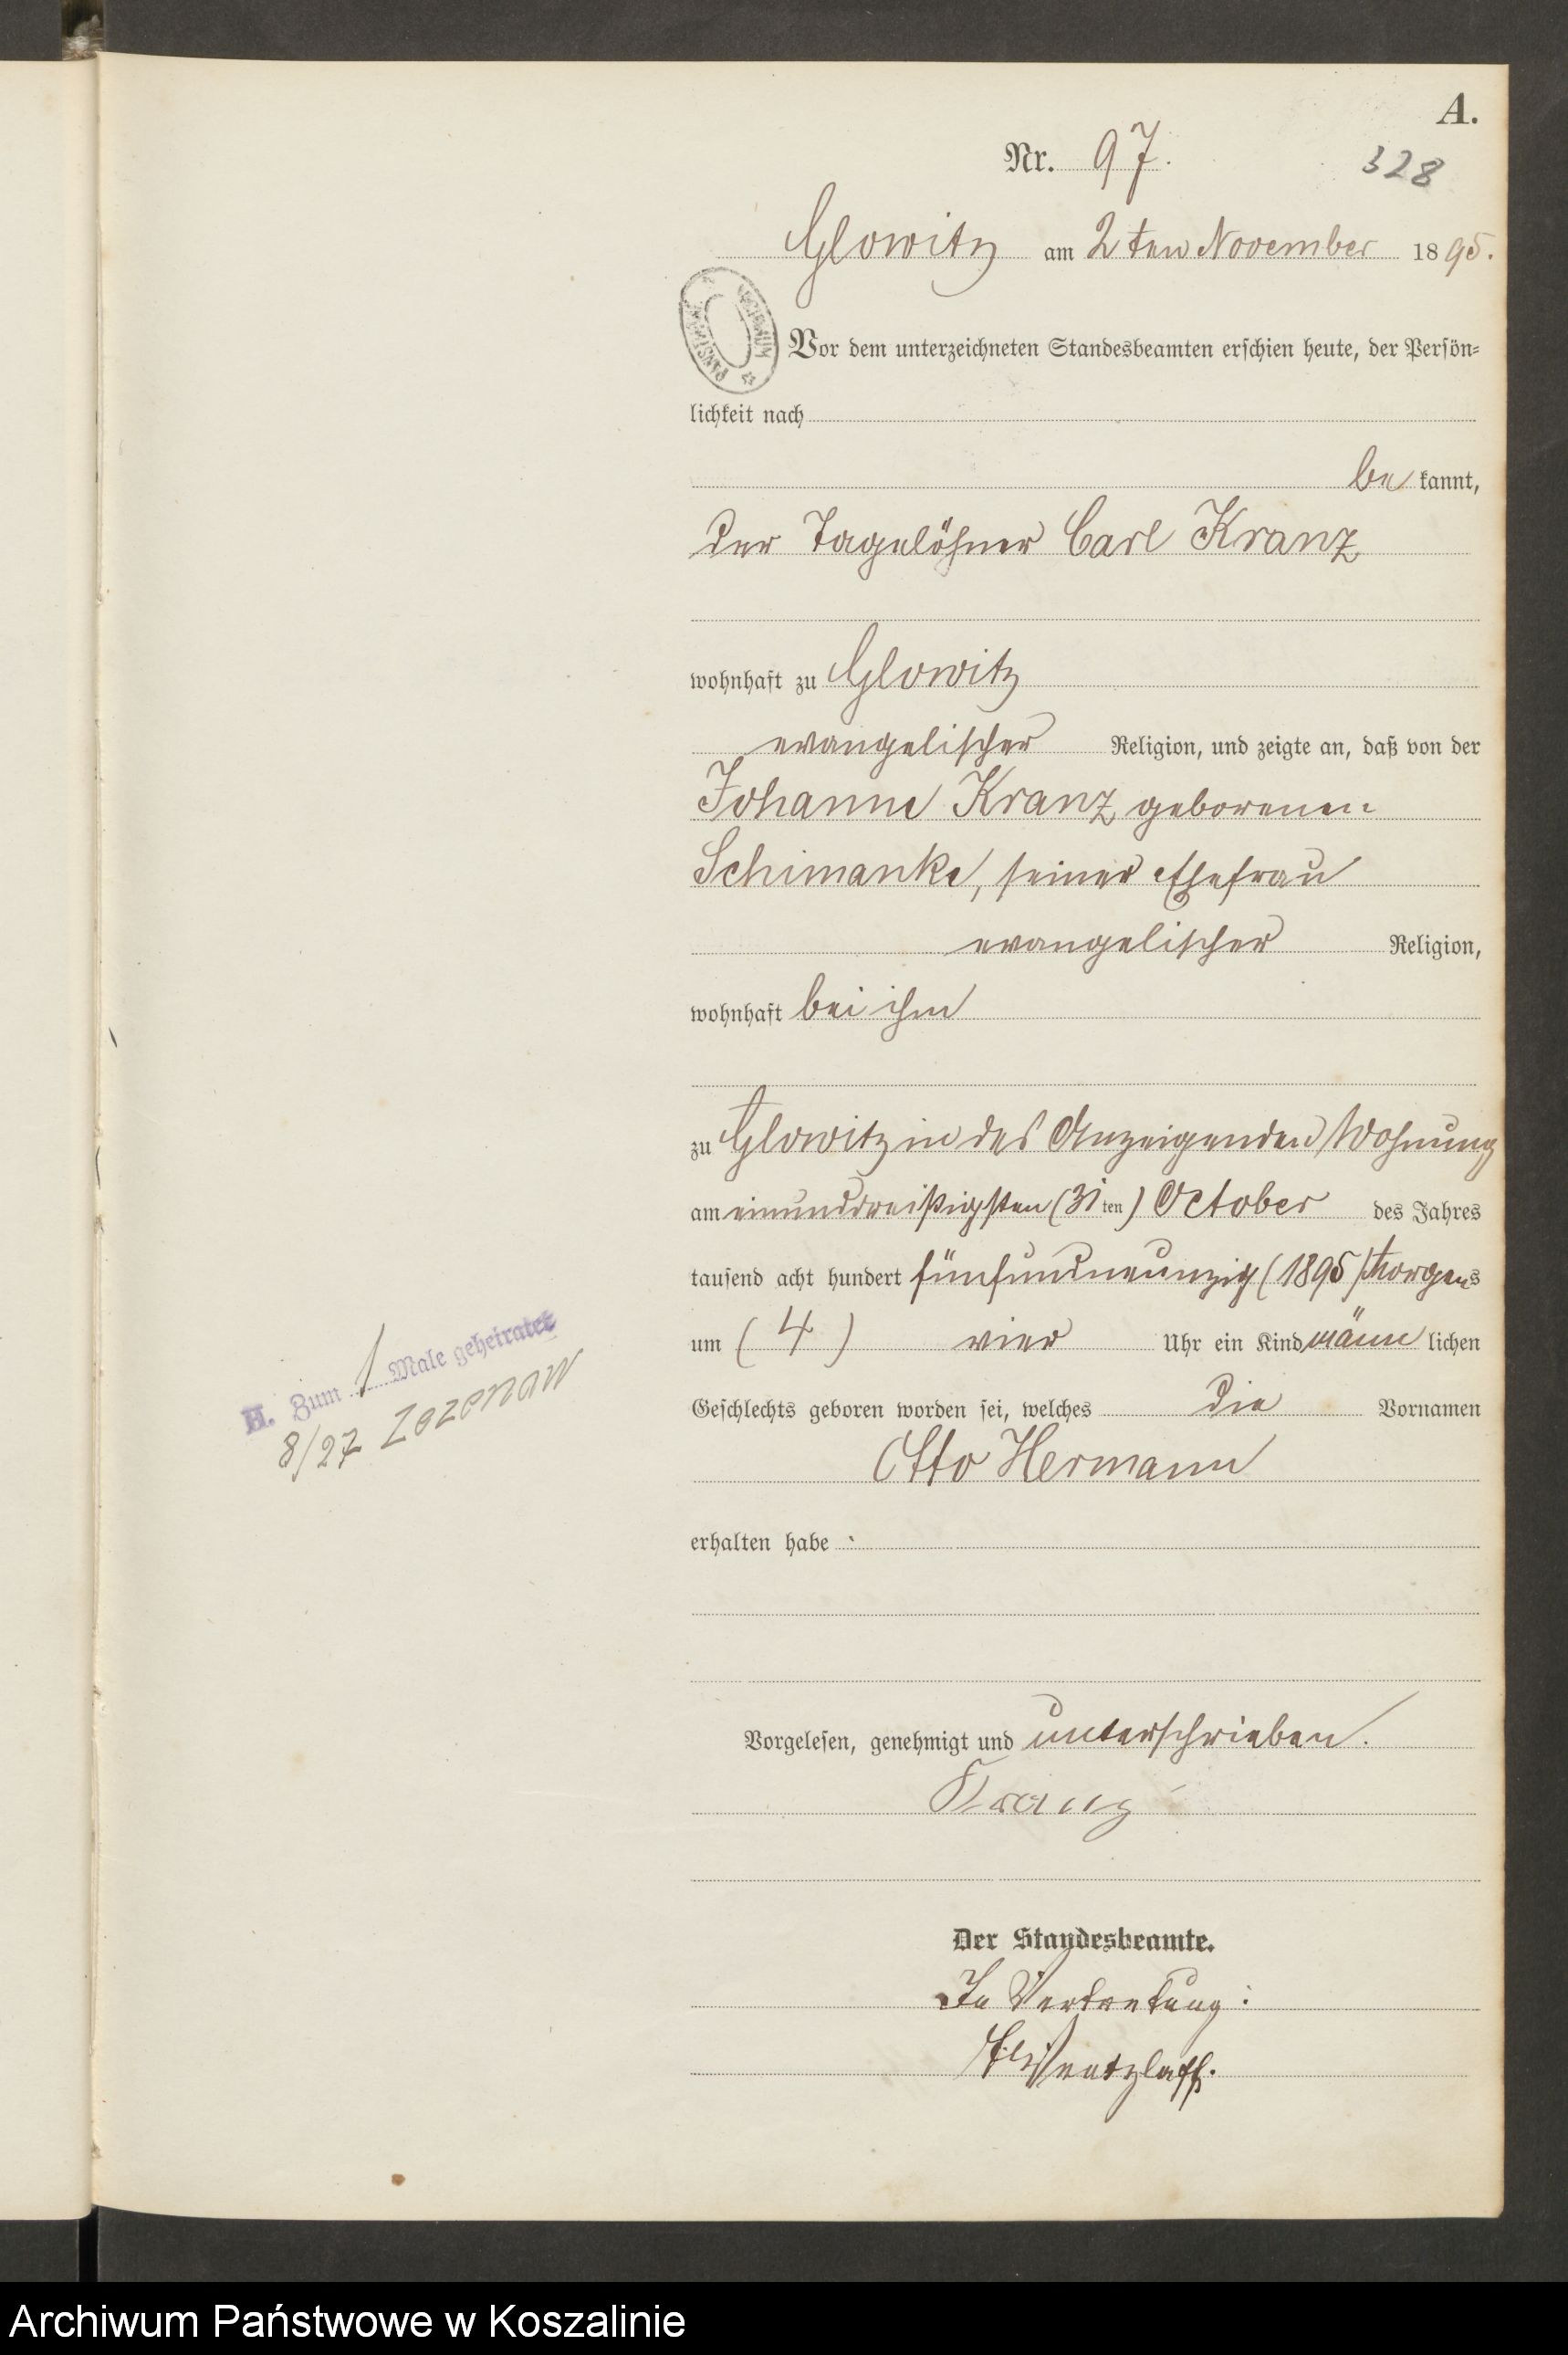 A.
Nr. 97.
328
Glowitz am 2ten November 1895.
Vor dem unterzeichneten Standesbeamten erschien heute, der Persön-
lichkeit nach
be kannt,
der Tagelöhner Carl Kranz
wohnhaft zu Glowitz
evangelischer Religion, und zeigte an, daß von der
Johanne Kranz geborenen
Schimanke, seiner Ehefrau
evangelischer Religion,
wohnhaft bei ihm
zu Glowitz in des Anzeigenden Wohnung
am einunddreißigsten (31ten) October des Jahres
tausend acht hundert fünfundneunzig (1895) Morgens
um (4) vier Uhr ein Kind männ lichen
Geschlechts geboren worden sei, welches die Vornamen
Otto Hermann
erhalten habe.
H. Zum 1 Male geheiratet
8/27 Zezenow
Vorgelesen, genehmigt und unterschrieben.
Kranz
Der Standesbeamte.
In Vertretung:
Wentzlaff.
Archiwum Państwowe w Koszalinie